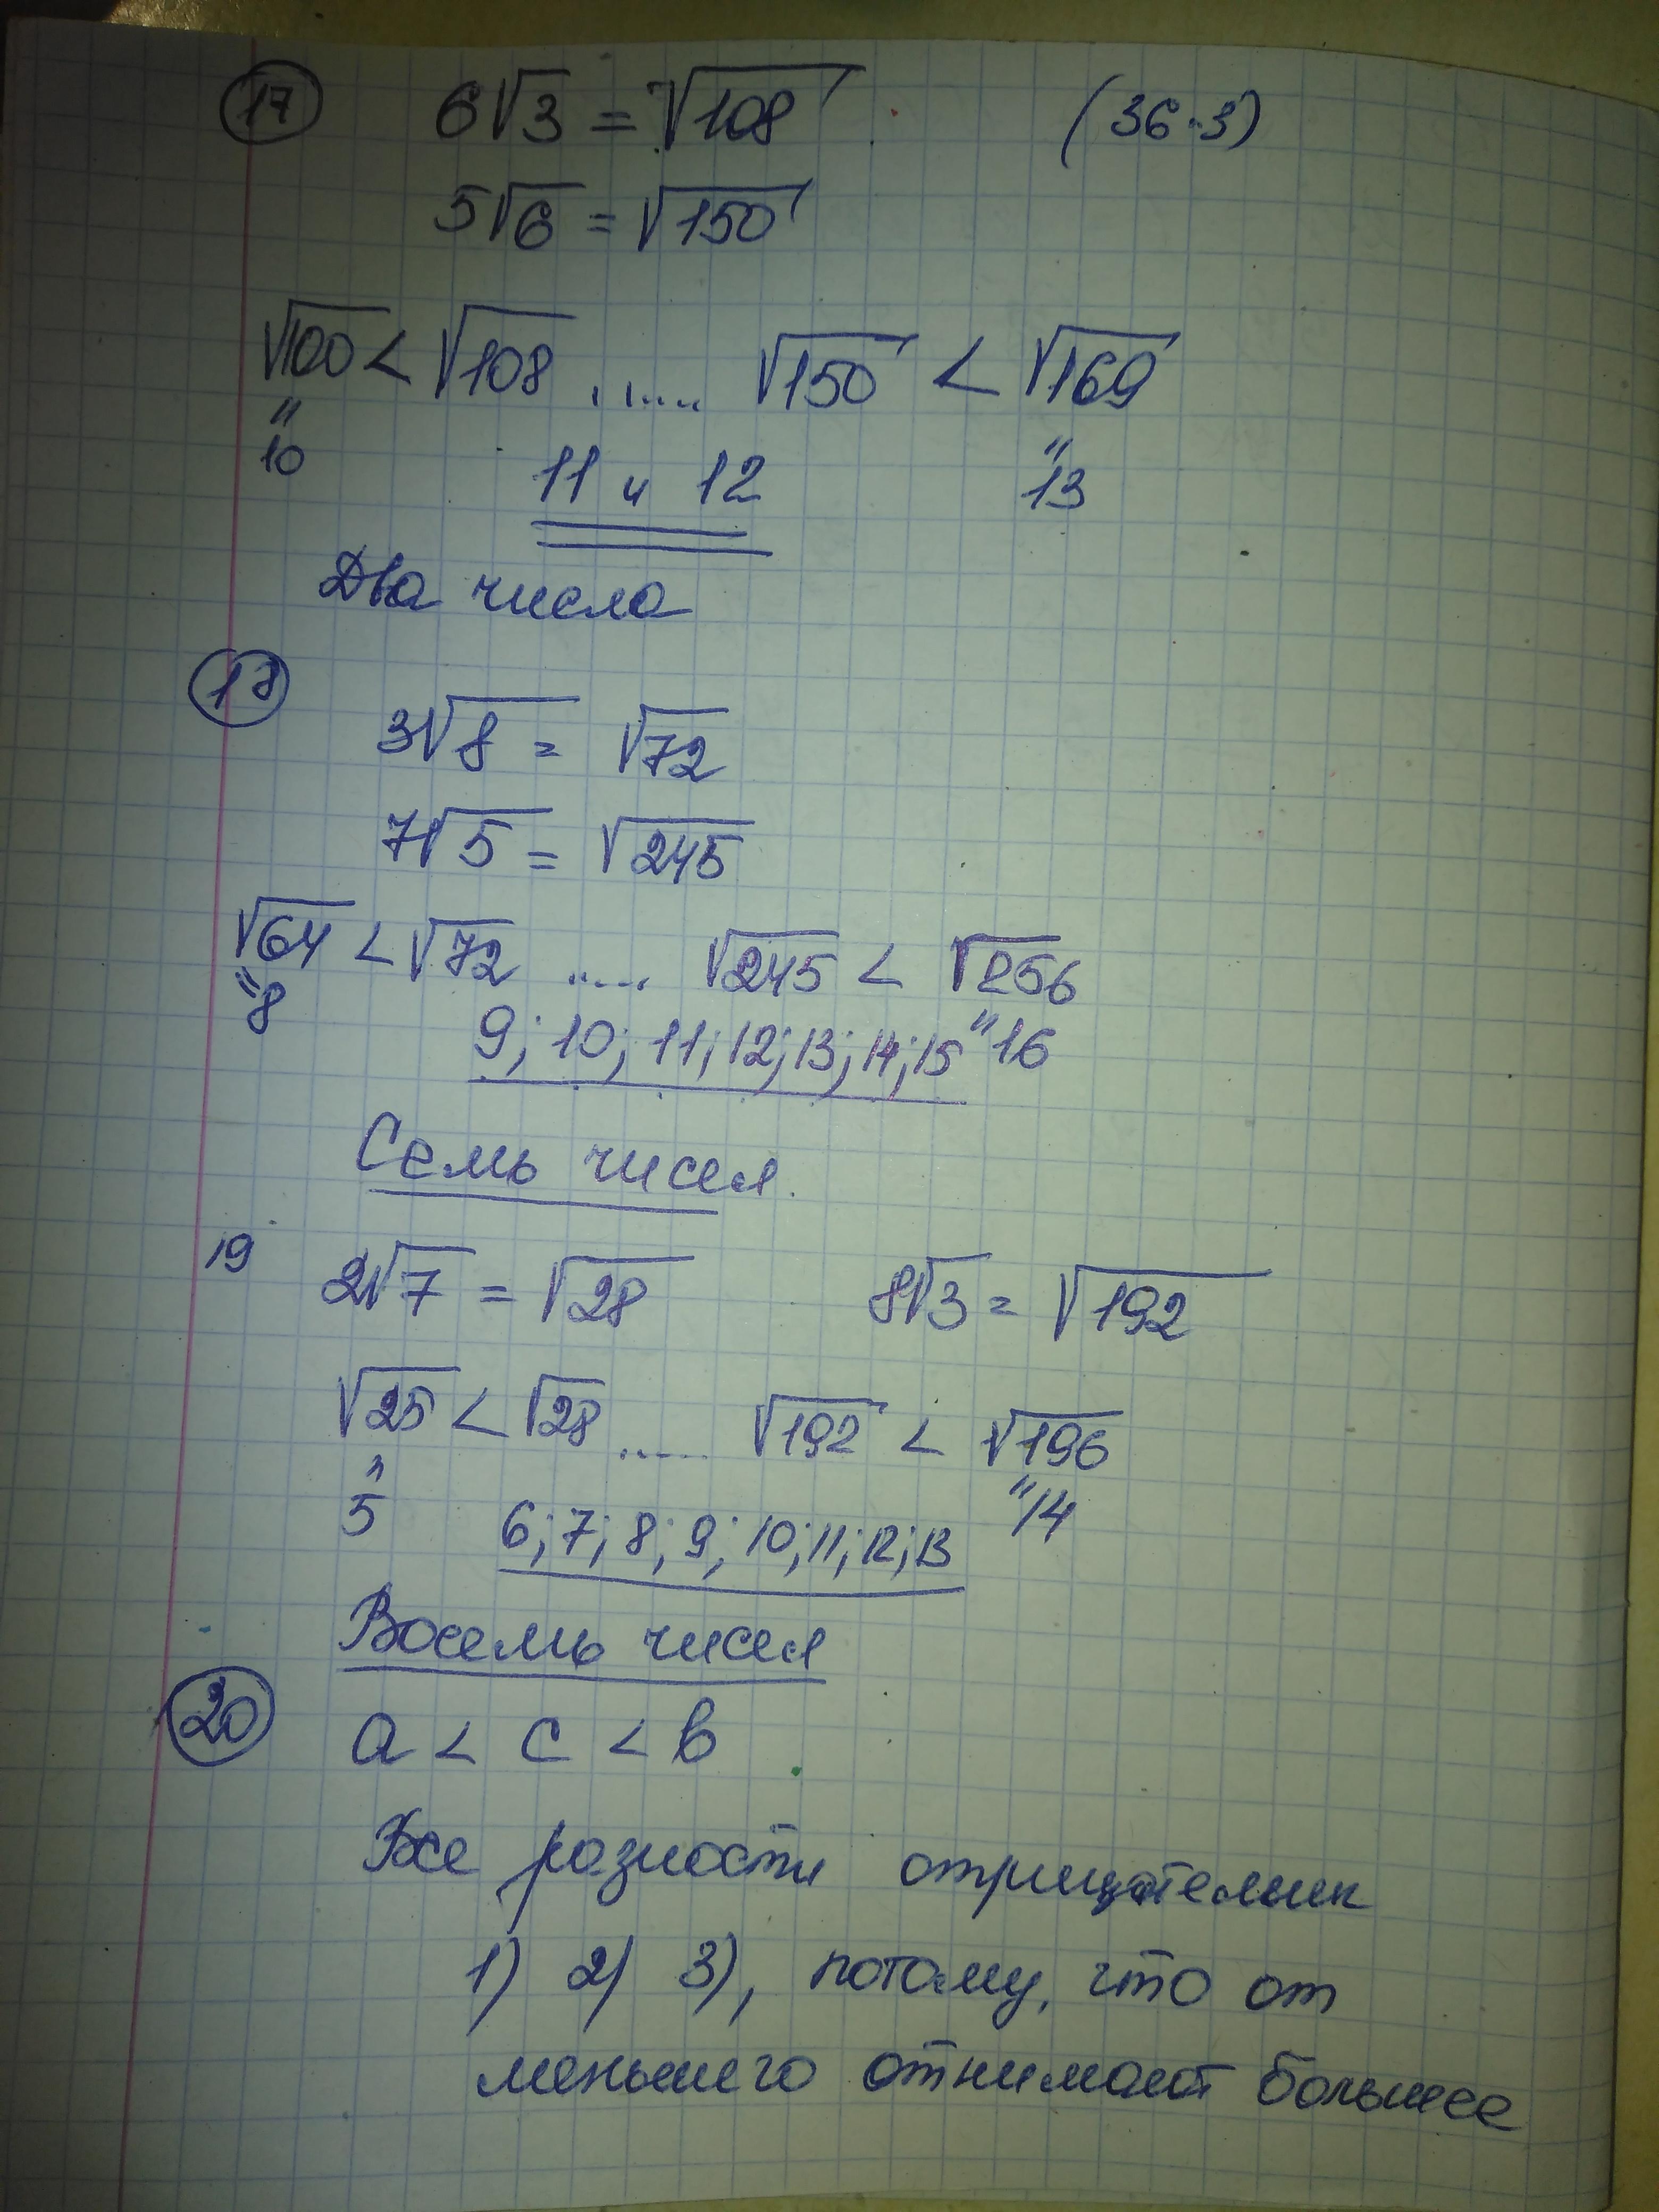 17 6√3 = √108 (36·3)
5√6 = √150
√100 < √108 ..... √150 < √169
" "
10 11 и 12 13
Два числа
18
3√8 = √72
7√5 = √245
√64 < √72 ..... √245 < √256
"8 9; 10; 11; 12; 13; 14; 15 "16
Семь чисел.
19 2√7 = √28 8√3 = √192
√25 < √28 ..... √192 < √196
" "
5 6; 7; 8; 9; 10; 11; 12; 13 14
Восемь чисел
20 a < c < b
Все разности отрицательны
1) 2) 3), потому, что от
меньшего отнимают большее